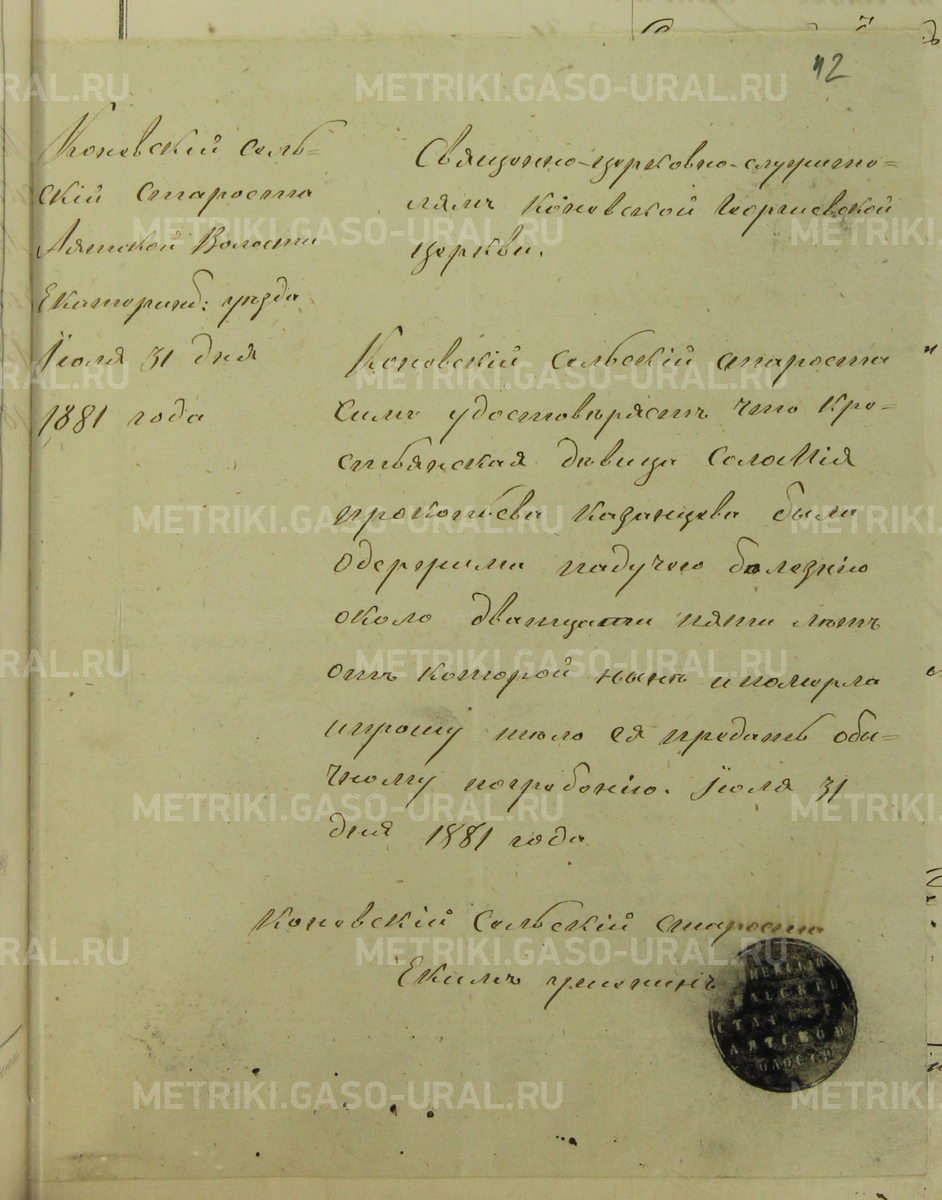 42
Коневскій сель-
скій староста
Аятской Волости
Екатеринб: уезда
Іюля 31 дня
1881 года
Священно-церковно-служите-
лямъ Коневской Георгиевской
церкви.
Коневскій сельскій староста
симъ удостовѣряетъ что кре-
стьянская дѣвица Соломія
прокопьева казанцева была
одержима падучею болезнію
около дватцати пяти лѣтъ
отъ которой нынѣ и померла
и прошу тѣло ея предать обы-
чному погребенію. Іюля 31
дня 1881 года
Коневскій Сельскій староста
Екимъ
СТАРОСТА
АЯТСКОЙ
ВОЛОСТИ
METRIKI.GASO-URAL.RU